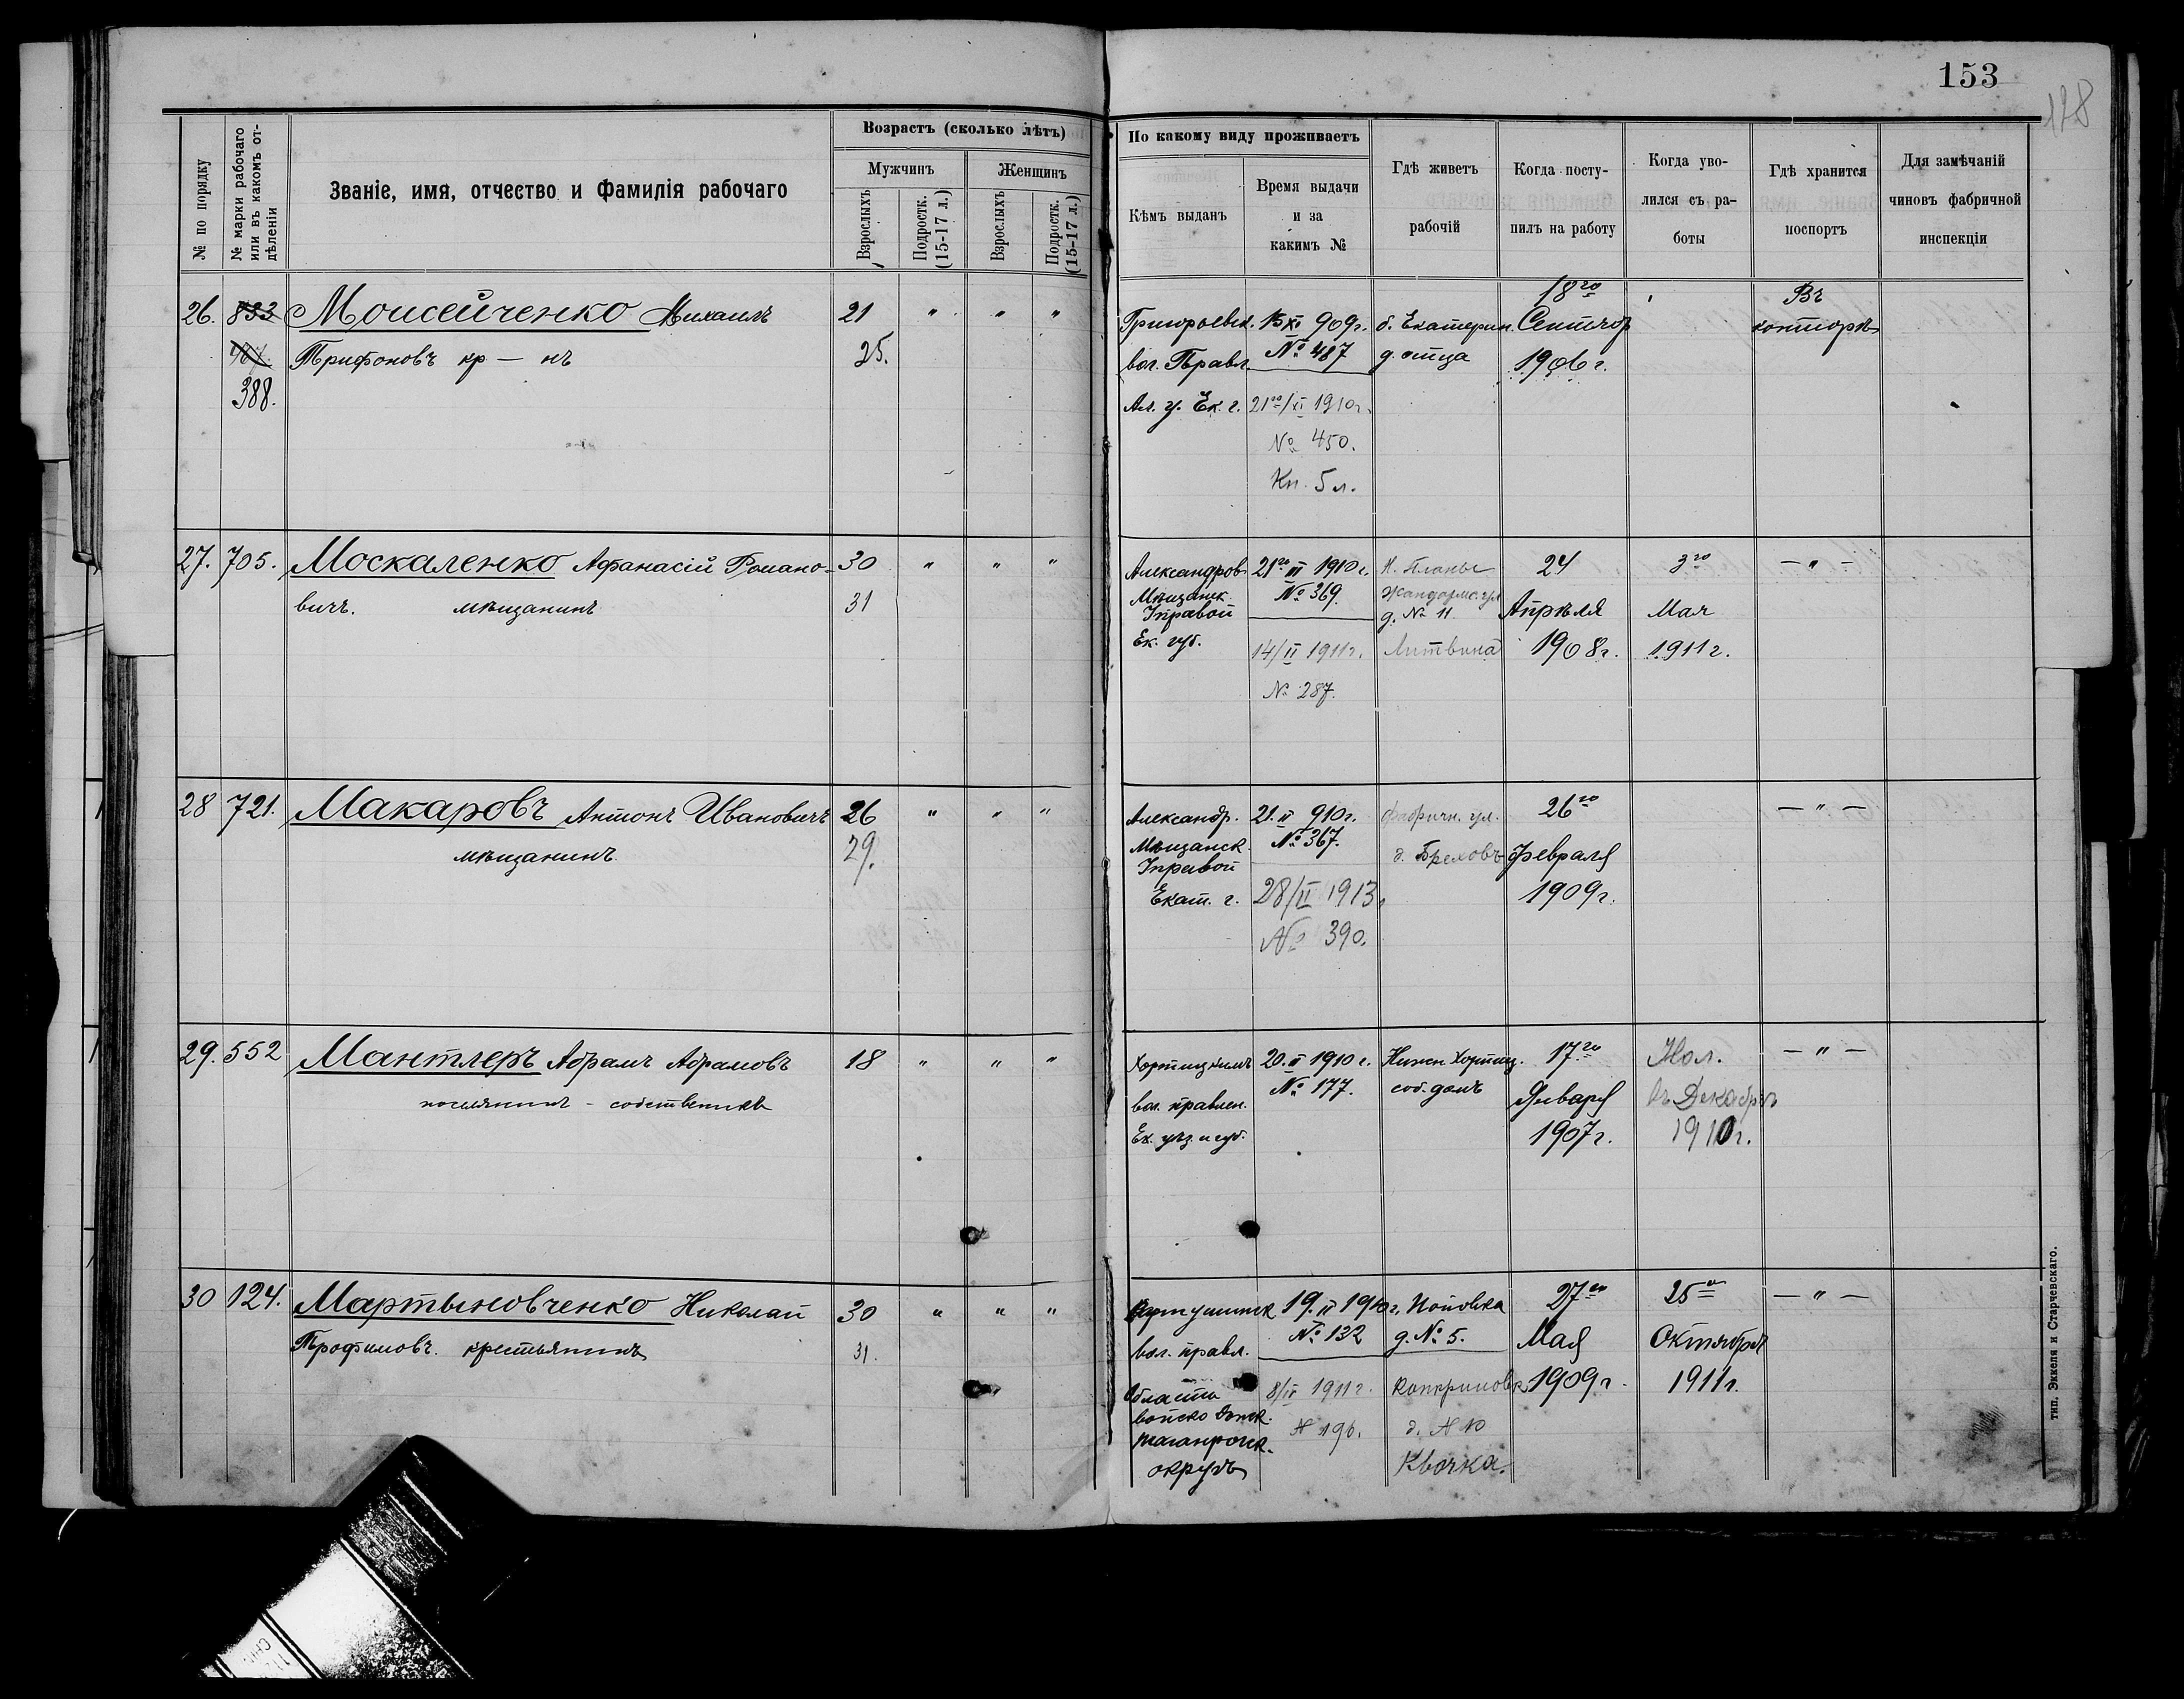 153
128
№ по порядку
№ марки рабочаго или въ какомъ отдѣленіи
Званіе, имя, отчество и фамилія рабочаго
Возрастъ (сколько лѣтъ)
Мужчинъ
Женщинъ
Взрослыхъ
Подростк. (15-17 л.)
Взрослыхъ
Подростк. (15-17 л.)
По какому виду проживаетъ
Кѣмъ выданъ
Время выдачи
и за
какимъ №
Гдѣ живетъ
рабочій
Когда посту-
пилъ на работу
Когда уво-
лился съ ра-
боты
Гдѣ хранится
поспортъ
Для замѣчаній
чиновъ фабричной
инспекціи
26. 833 Моисейченко Михаилъ 21 " " "
Трифоновъ кр — нъ 25.
388.
Григорьевск. 15 XI 909г. б. Екатерин. 18го Въ
вол. Правл. № 487 д. отца Сентябр конторѣ
1906 г.
Ал. у. Ек. г. 21го/XI 1910г.
№ 450.
Кн. 5 л.
27. 705. Москаленко Афанасій Романо- 30 " " "
вичъ. мѣщанинъ 31
Александров. 21го III 1910г. Н. Планы 24 3го — " —
Мѣщанск. № 369. Жандармс. ул
Управой д. № 11 Апрѣля Мая
Ек. губ. 14/II 1911г. Литвина 1908г. 1911г.
№ 287.
28 721. Макаровъ Антонъ Ивановичъ 26 " " "
мѣщанинъ 29.
Александр. 21. II 910г. Фабричн. ул. 26го — " —
Мѣщанск. № 367. д. Бреховъ Февраля
Управой
Екат. г. 28/II 1913 1909г.
№ 390.
29. 552 Мантлеръ Абрамъ Абрамовъ 18 " " "
поселянинъ - собственикъ
Хортицкимъ 20. II 1910г. Нижн Хортиц. 17го Ноя. — " —
вол. правлен. № 177. соб. домъ Января въ Декабрѣ
Ек. уѣз. и губ. 1907г. 1910г.
30 124. Мартыновченко Николай 30 " " "
Трофимовъ. крестьянинъ 31.
19. II 1910г. Поповка 27го 25го — " —
вол. правл. № 132 д. № 5. Мая Октября
Области 8/IV 1911г. 1909г. 1911г.
войско Донск. № 196. д. № 10
таганрогск.
округъ Квочка.
тип. Эккеля и Старчевскаго.